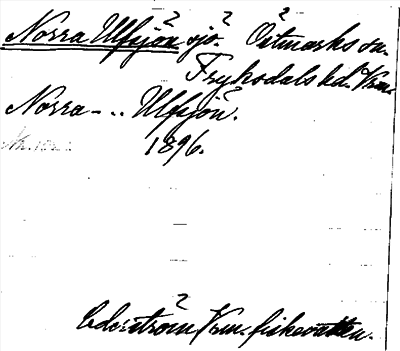 Norra Ulfsjön sjö. Östmarks sn.
Fryksdals hd. Vrm.
Norra - .. Ulfsjön.
1896.
Cederström Vrm. fiskevatten.